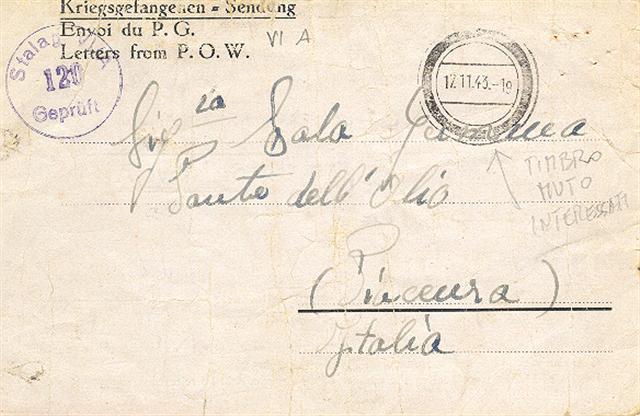 Kriegsgefangenen - Sendung
Envoi du P. G.
Letters from P. O. W.
VI A
Stalag
120
Geprüft
11.43.-19
Sig.ra Sala
Ponte dell'Olio
(Piacenza)
Italia
TIMBRO
MUTO